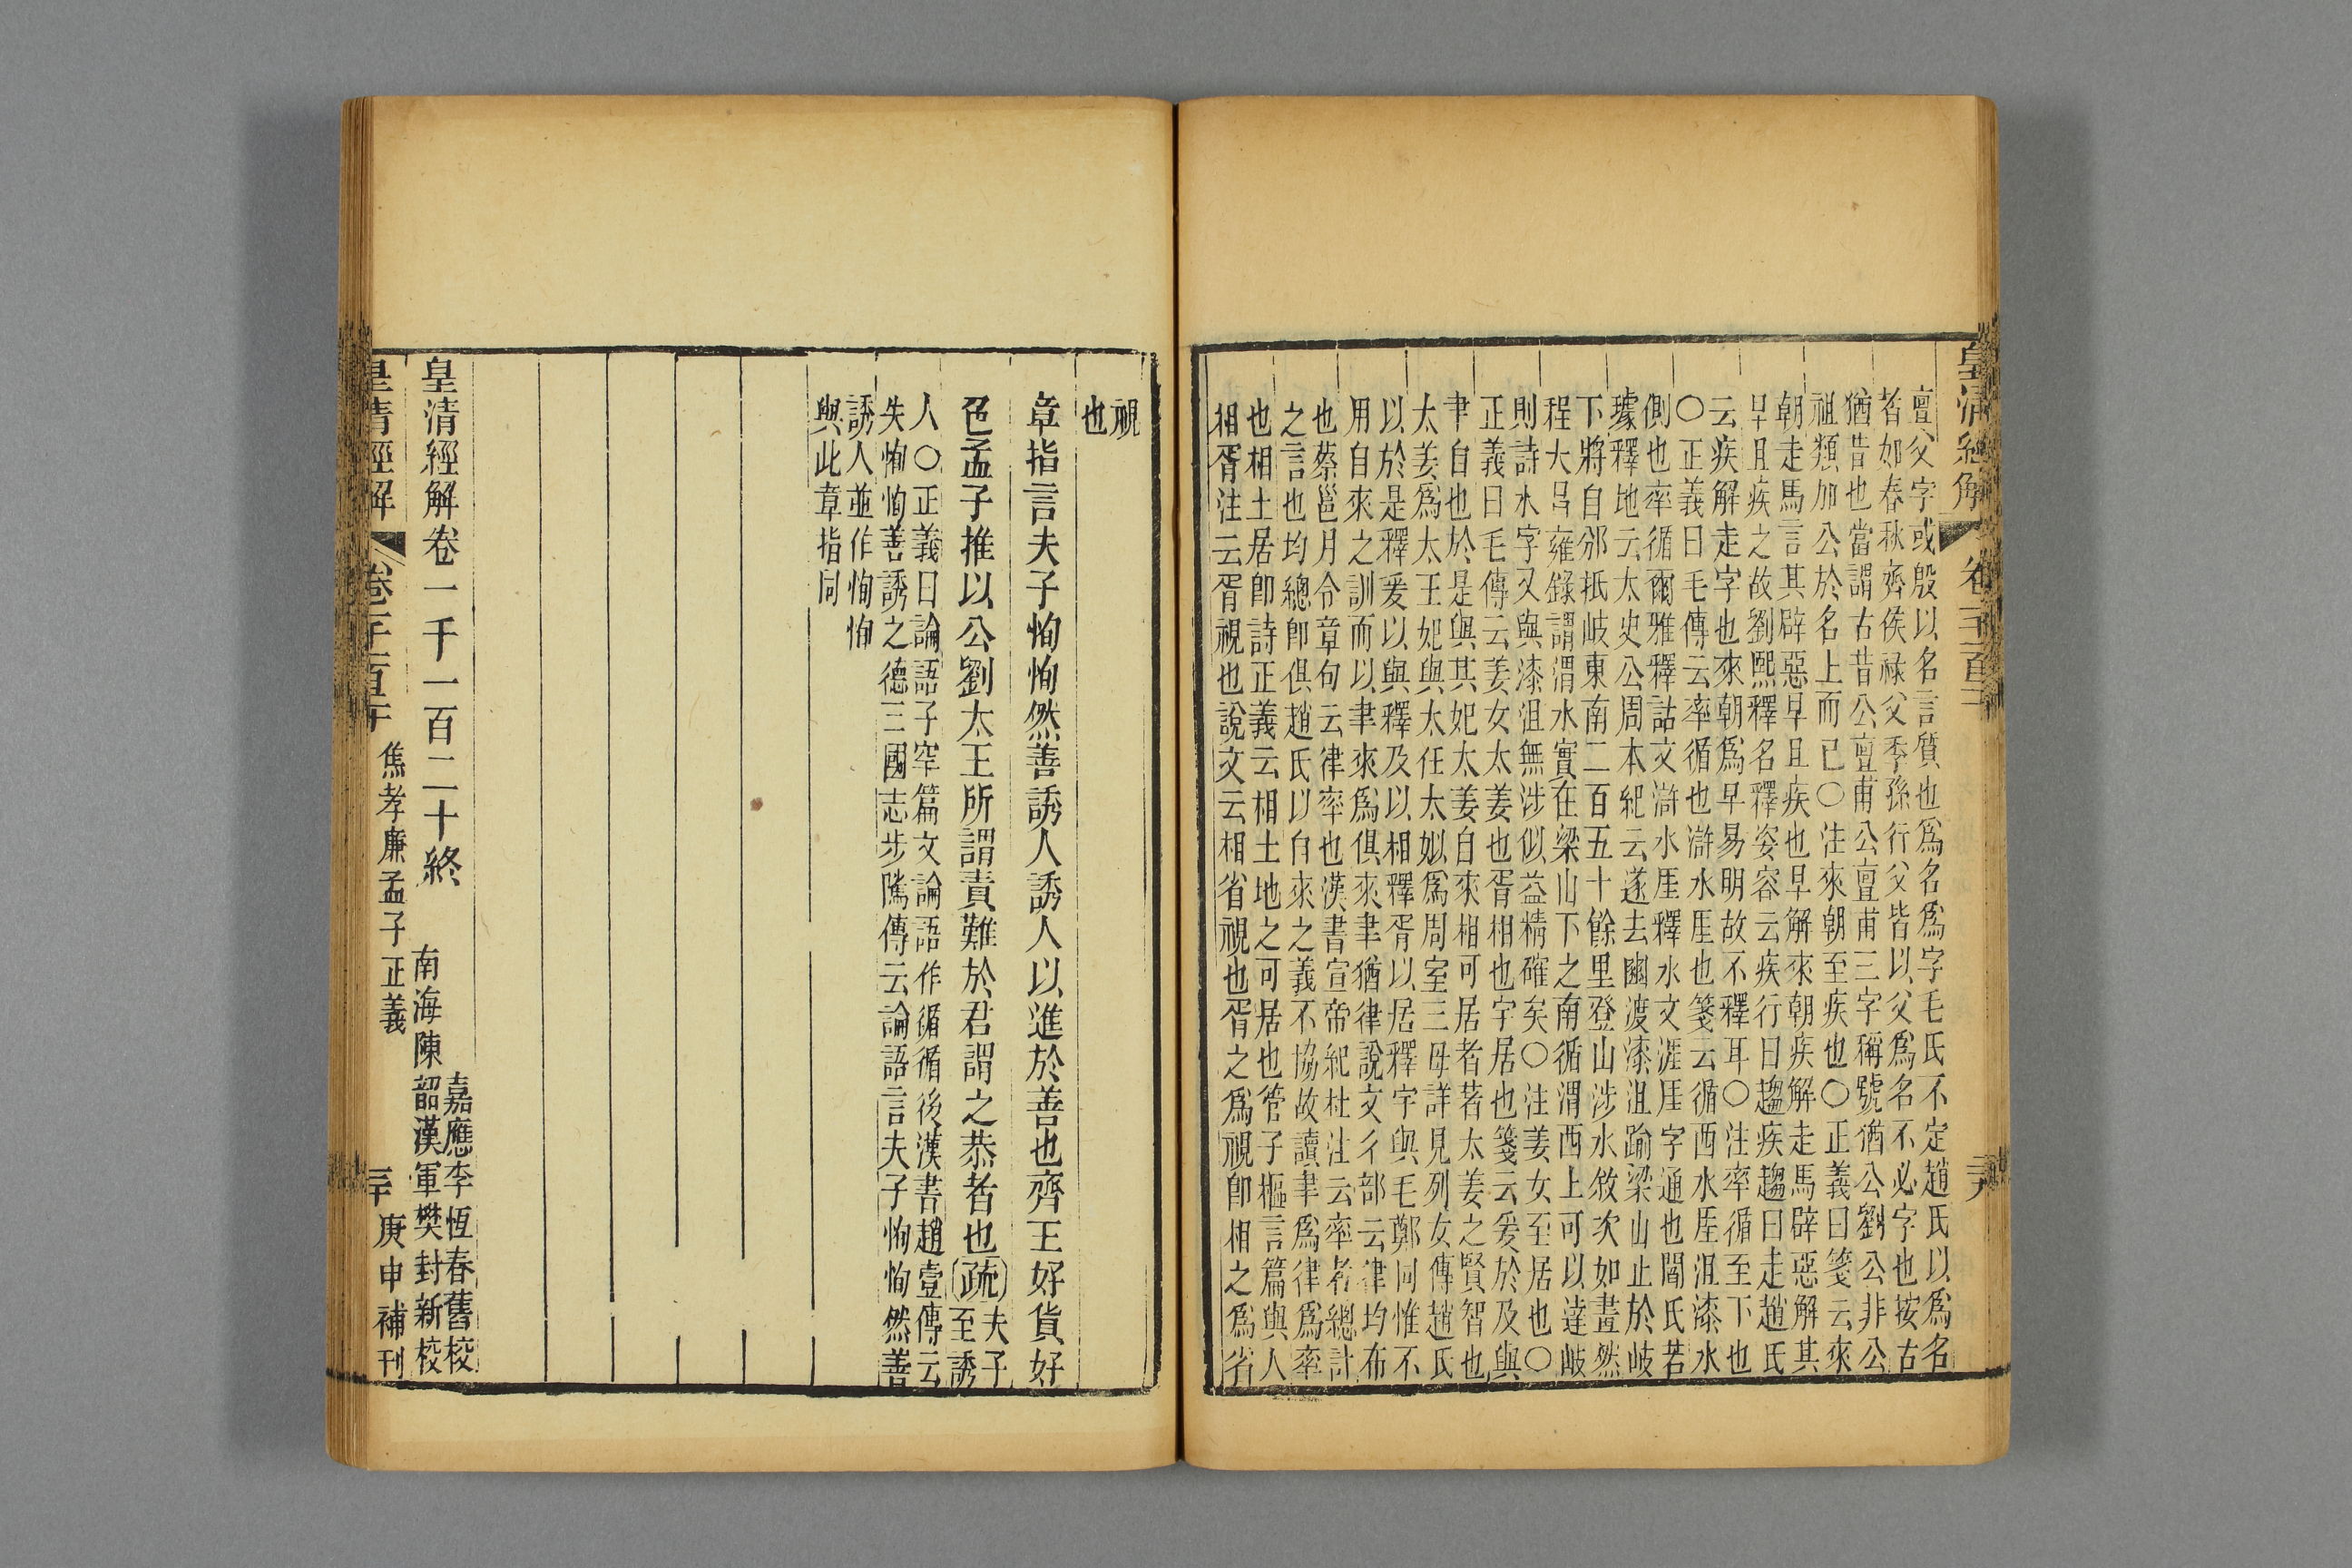 皇清經解
卷一千一百二十
亶父字或殷以名言質也爲名爲字毛氏不定趙氏以爲名
者如春秋齊侯祿父季孫行父皆以父爲名不必字也按古
猶昔也當謂古昔公亶甫公亶甫三字稱號猶公劉公非公
祖類加公於名上而已○注來朝至疾也○正義曰箋云來
朝走馬言其辟惡早且疾也早解來朝疾解走馬辟惡解其
早且疾之故劉熙釋名釋姿容云疾行曰趨疾趨曰走趙氏
云疾解走字也來朝爲早易明故不釋耳○注率循至下也
○正義曰毛傳云率循也滸水厓也箋云循西水厓沮漆水
側也率循爾雅釋詁文滸水厓釋水文涯厓字通也閻氏若
璩釋地云太史公周本紀云遂去豳渡漆沮踰梁山止於岐
下將自邠抵岐東南二百五十餘里登山涉水敘次如畫然
程大昌雍錄謂渭水實在梁山下之南循渭西上可以達岐
則詩水字又與漆沮無涉似益精確矣○注姜女至居也○
正義曰毛傳云姜女太姜也胥相也宇居也箋云爰於及與
聿自也於是與其妃太姜自來相可居者著太姜之賢智也
太姜爲太王妃與太任太姒爲周室三母詳見列女傳趙氏
以於是釋爰以與釋及以相釋胥以居釋宇與毛鄭同惟不
用自來之訓而以聿來爲俱來聿猶律說文彳部云律均布
也蔡邕月令章句云律率也漢書宣帝紀杜注云率者總計
之言也均總卽俱趙氏以自來之義不協故讀聿爲律爲率
也相土居卽詩正義云相土地之可居也管子樞言篇與人
相胥注云胥視也說文云相省視也胥之爲視卽相之爲省
視
也
章指言夫子恂恂然善誘人誘人以進於善也齊王好貨好
色孟子推以公劉太王所謂責難於君謂之恭者也〔疏〕夫子
至誘
人○正義曰論語子罕篇文論語作循循後漢書趙壹傳云
失恂恂善誘之德三國志步隲傳云論語言夫子恂恂然善
誘人並作恂恂
與此章指同
皇清經解卷一千一百二十終
嘉應李恆春舊校
南海陳韶漢軍樊封新校
皇清經解
卷一千一百二十
焦孝廉孟子正義
三十
庚申補刊